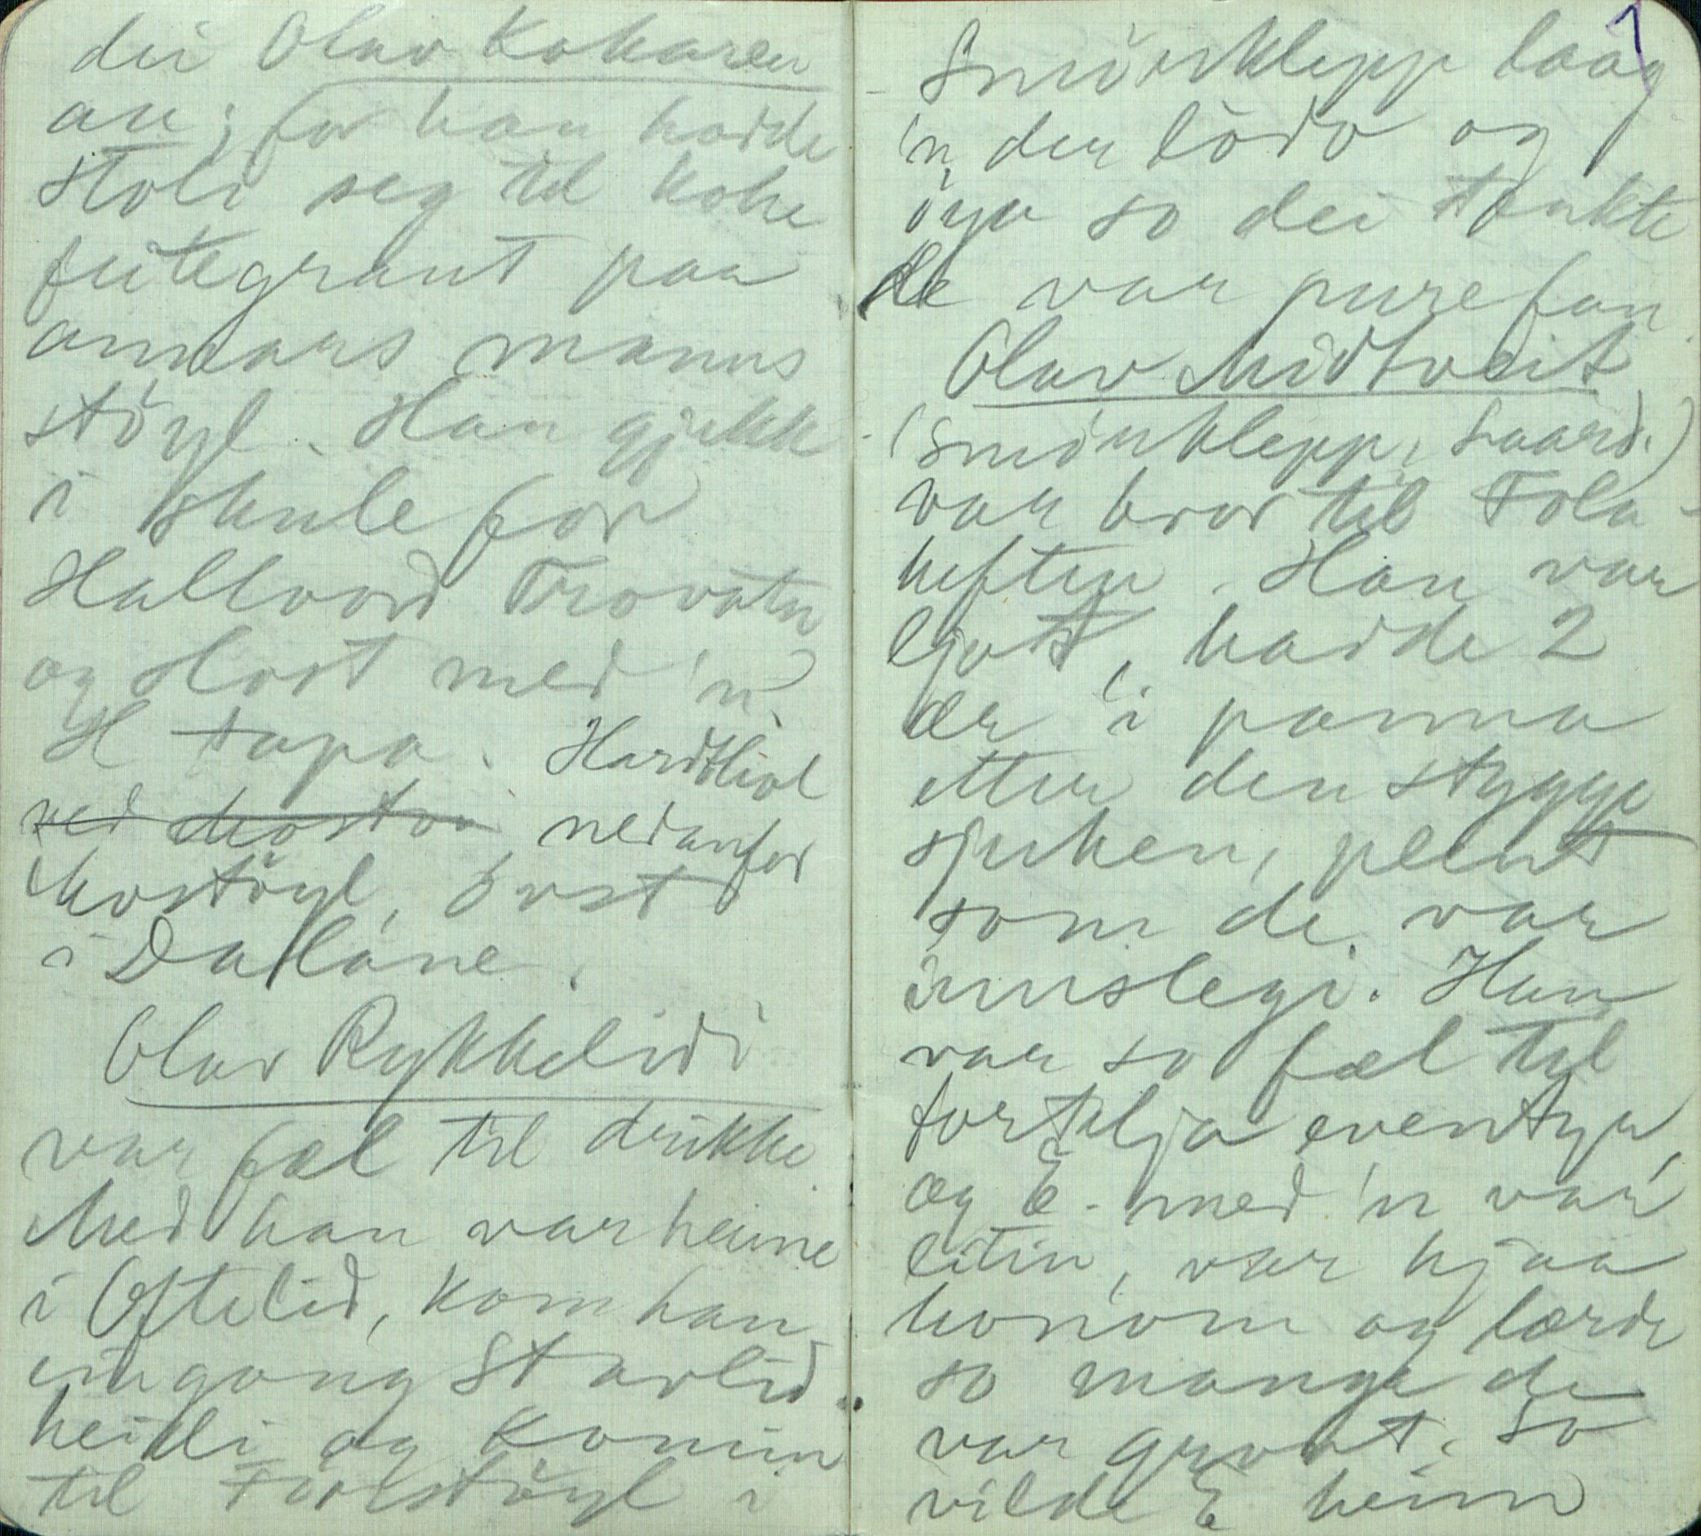 dei Olav Kokaren
an; for han hadde
stoli seg til koke
feitegraut paa
annars manns
stöyl. Han gjekk
i skule for
Hallvord Trovatn
og slost med 'n.
H tapa. Hardtliol
ved Mostöa nedanfor
Mostöyl, övst
i Dalane.
Olav Rykkelidi
var fæl til drikke.
Med han var heime
i Oftelid, kom han
eingong Starlid-
heidi og komin
til Förlstöyl i
Smörklepp laag
'n der lödv og
öya so dei tenkte
de var pure fan
Olav Midtveit
(Smörklepp, Saard.)
var bror til Fola-
heften. Han var
ljot, hadde 2
ær i panna
etter den stygge
sjuken, pelnt
som de var
innslegi. Han
var so fæl tyl
fortelja eventyr,
og E. med 'n var
litin, var hjaa
honom og lærde
so mange de
var grovt. So
vilde E heim